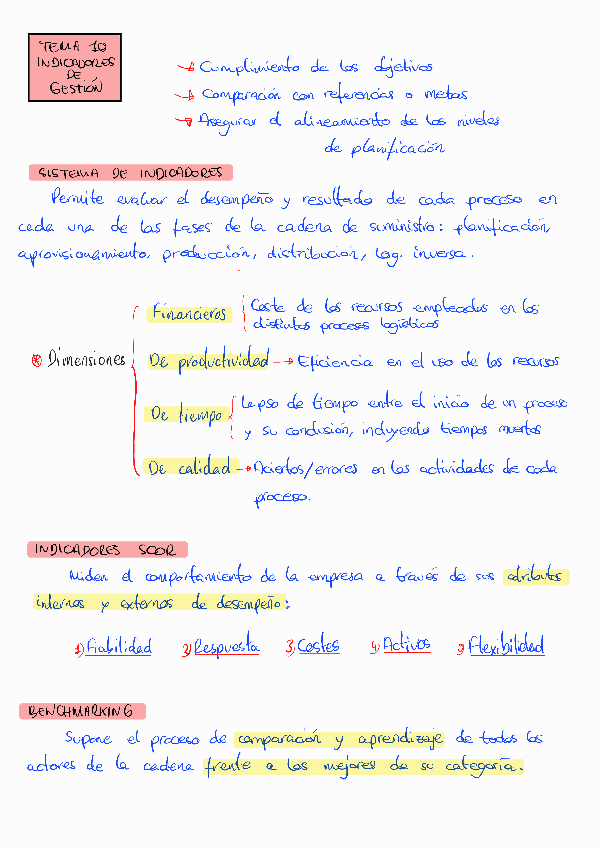 TEMA 10
INDICADORES
DE
GESTIÓN
→ Cumplimiento de los objetivos
→ Comparación con referencias o metas
→ Asegurar el alineamiento de los niveles
de planificación
SISTEMA DE INDICADORES
Permite evaluar el desempeño y resultado de cada proceso en
cada una de las fases de la cadena de suministro: planificación,
aprovisionamiento, producción, distribución, log. inversa.
Financieros Coste de los recursos empleados en los
distintos procesos logísticos
* Dimensiones De productividad → Eficiencia en el uso de los recursos
De tiempo Lapso de tiempo entre el inicio de un proceso
y su conclusión, incluyendo tiempos muertos
De calidad → Aciertos/errores en las actividades de cada
proceso.
INDICADORES SCOR
Miden el comportamiento de la empresa a través de sus atributos
internos y externos de desempeño:
1) Fiabilidad 2) Respuesta 3) Costes 4) Activos 5) Flexibilidad
BENCHMARKING
Supone el proceso de comparación y aprendizaje de todos los
actores de la cadena frente a los mejores de su categoría.